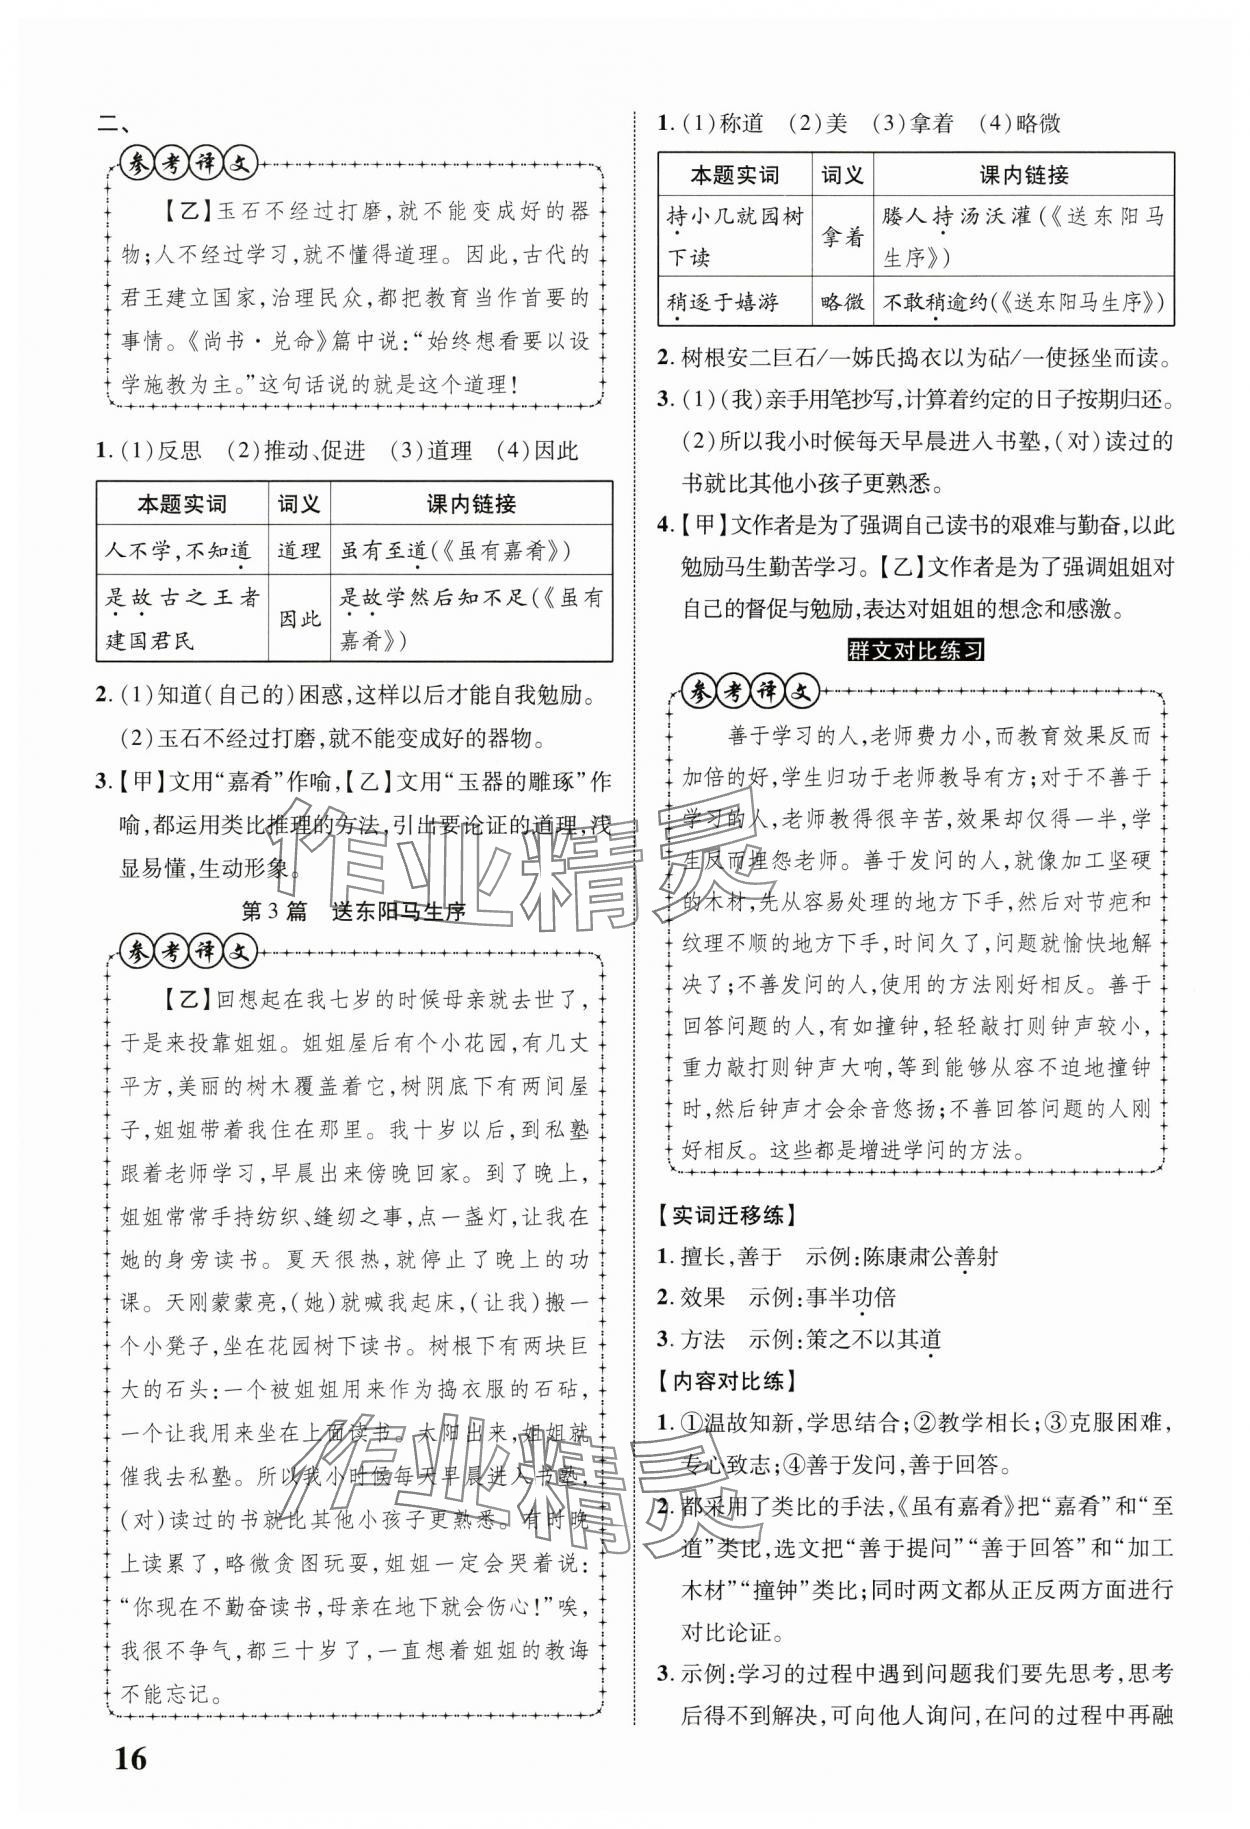 二、
参考译文
【乙】玉石不经过打磨,就不能变成好的器
物;人不经过学习,就不懂得道理。因此,古代的
君王建立国家,治理民众,都把教育当作首要的
事情。《尚书·兑命》篇中说:“始终想着要以设
学施教为主。”这句话说的就是这个道理!
1. (1)反思 (2)推动、促进 (3)道理 (4)因此
本题实词 词义 课内链接
人不学,不知道 道理 虽有至道(《虽有嘉肴》)
是故古之王者
建国君民 因此 是故学然后知不足(《虽有
嘉肴》)
2. (1)知道(自己的)困惑,这样以后才能自我勉励。
(2)玉石不经过打磨,就不能变成好的器物。
3.【甲】文用“嘉肴”作喻,【乙】文用“玉器的雕琢”作
喻,都运用类比推理的方法,引出要论证的道理,浅
显易懂,生动形象。
第3篇 送东阳马生序
参考译文
【乙】回想起在我七岁的时候母亲就去世了,
于是来投靠姐姐。姐姐屋后有个小花园,有几丈
平方,美丽的树木覆盖着它,树阴底下有两间屋
子,姐姐带着我住在那里。我十岁以后,到私塾
跟着老师学习,早晨出来傍晚回家。到了晚上,
姐姐常常手持纺织、缝纫之事,点一盏灯,让我在
她的身旁读书。夏天很热,就停止了晚上的功
课。天刚蒙蒙亮,(她)就喊我起床,(让我)搬一
个小凳子,坐在花园树下读书。树根下有两块巨
大的石头:一个被姐姐用来作为捣衣服的石砧,
一个让我用来坐在上面读书。太阳出来,姐姐就
催我去私塾。所以我小时候每天早晨进入书塾,
(对)读过的书就比其他小孩子更熟悉。有时晚
上读累了,略微贪图玩耍,姐姐一定会哭着说:
“你现在不勤奋读书,母亲在地下就会伤心!”唉,
我很不争气,都三十岁了,一直想着姐姐的教诲
不能忘记。
1. (1)称道 (2)美 (3)拿着 (4)略微
本题实词 词义 课内链接
持小几就园树
下读 拿着 媵人持汤沃灌(《送东阳马
生序》)
稍逐于嬉游 略微 不敢稍逾约(《送东阳马生序》)
2. 树根安二巨石/一姊氏捣衣以为砧/一使拯坐而读。
3. (1)(我)亲手用笔抄写,计算着约定的日子按期归还。
(2)所以我小时候每天早晨进入书塾,(对)读过的
书就比其他小孩子更熟悉。
4.【甲】文作者是为了强调自己读书的艰难与勤奋,以此
勉励马生勤苦学习。【乙】文作者是为了强调姐姐对
自己的督促与勉励,表达对姐姐的想念和感激。
群文对比练习
参考译文
善于学习的人,老师费力小,而教育效果反而
加倍的好,学生归功于老师教导有方;对于不善于
学习的人,老师教得很辛苦,效果却仅得一半,学
生反而埋怨老师。善于发问的人,就像加工坚硬
的木材,先从容易处理的地方下手,然后对节疤和
纹理不顺的地方下手,时间久了,问题就愉快地解
决了;不善于发问的人,使用的方法刚好相反。善于
回答问题的人,有如撞钟,轻轻敲打则钟声较小,
重力敲打则钟声大响,等到能够从容不迫地撞钟
时,然后钟声才会余音悠扬;不善回答问题的人刚
好相反。这些都是增进学问的方法。
【实词迁移练】
1. 擅长,善于 示例:陈康肃公善射
2. 效果 示例:事半功倍
3. 方法 示例:策之不以其道
【内容对比练】
1. ①温故知新,学思结合;②教学相长;③克服困难,
专心致志;④善于发问,善于回答。
2. 都采用了类比的手法,《虽有嘉肴》把“嘉肴”和“至
道”类比,选文把“善于提问”“善于回答”和“加工
木材”“撞钟”类比;同时两文都从正反两方面进行
对比论证。
3. 示例:学习的过程中遇到问题我们要先思考,思考
后得不到解决,可向他人询问,在问的过程中再融
16
作业精灵
作业精灵